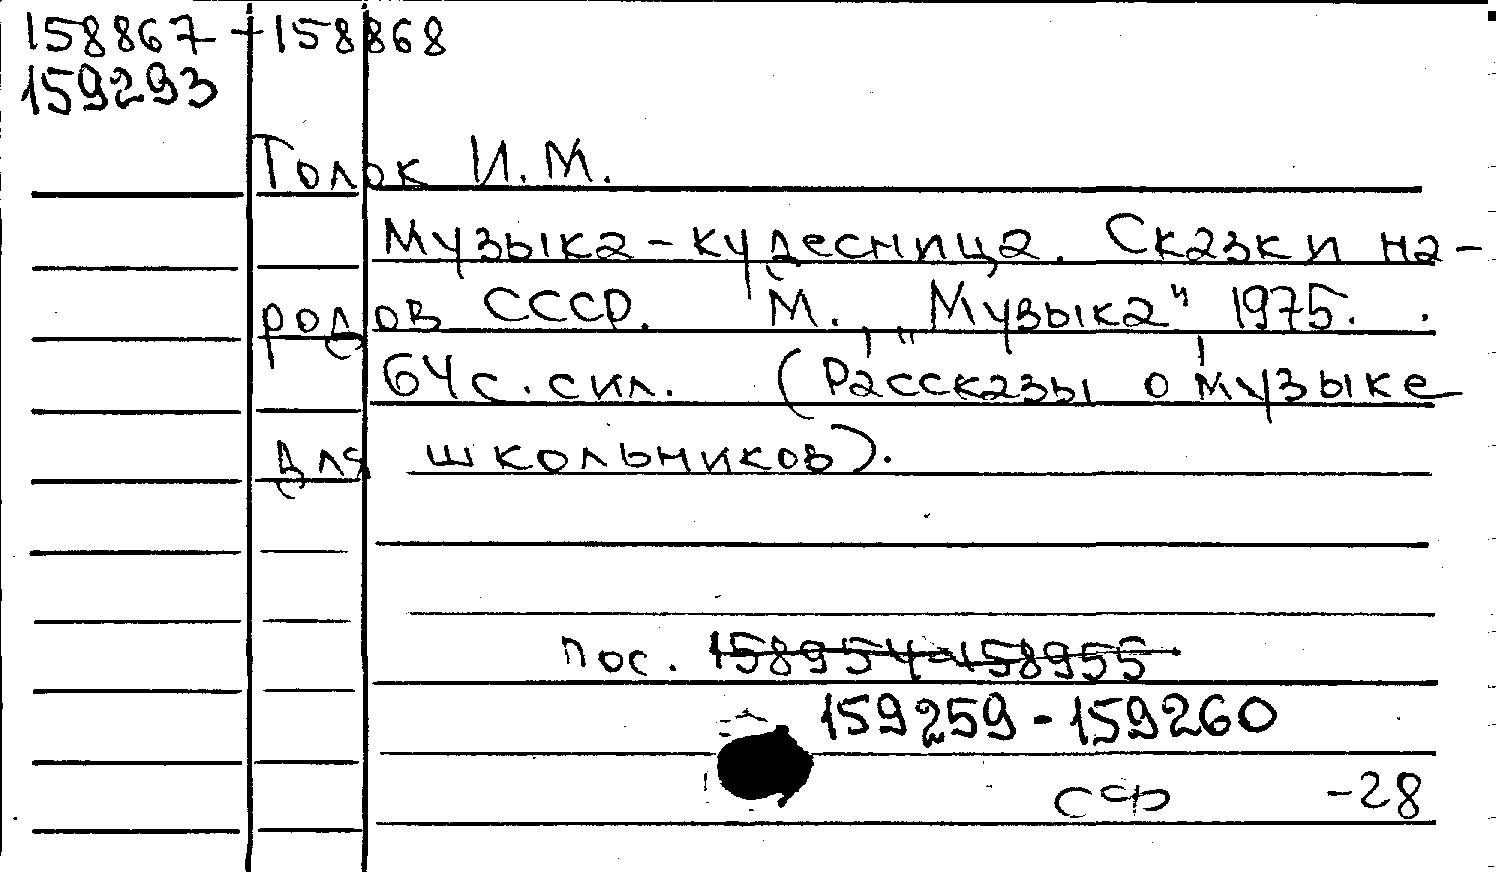 158867 - 158868
159293
Голок И.М.
Музыка-кудесница. Сказки на-
родов СССР. М., „Музыка" 1975.
64с. сил. (Рассказы о музыке
для школьников).
пос. 158954-158955
159259-159260
СФ -28